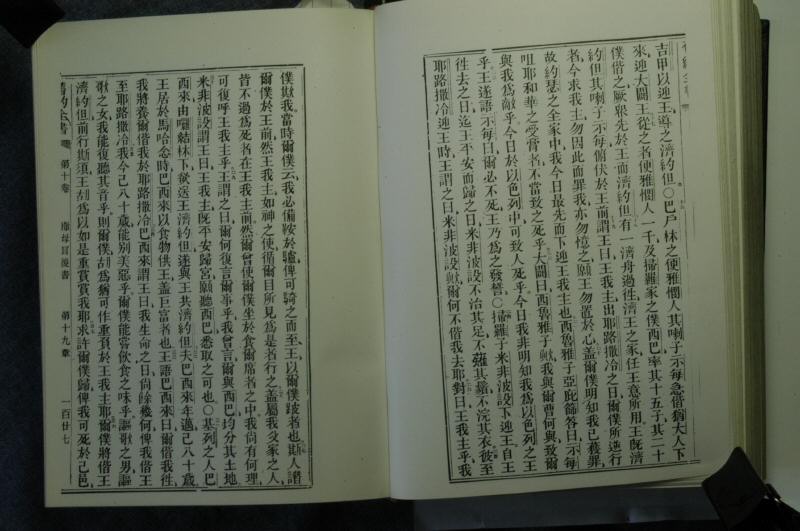 吉甲以迎王導之濟約但○巴戶冧之便雅憫人其喇子示每急偕猶大人下
來迎大闢王從之者便雅憫人一千及掃羅家之僕西巴率其十五子其二十
僕偕之厥衆先於王而濟約但有一濟舟過徃濟王之家任王意所用王旣濟
約但其喇子示每俯伏於王前謂王曰王我主出耶路撒冷之日爾僕所逆行
者今求我主勿因此而罪我亦勿憶之願王勿置於心蓋爾僕明知我已獲罪
故約瑟之全家中我今日最先而下迎王我主也西魯雅子亞庇篩答曰示每
咀耶和華之受膏者不當致之死乎大闢曰西魯雅子歟我與爾曹何與致爾
與我為敵乎今日於以色列中可致人死乎今日我非明知我為以色列之王
乎王遂語示每曰爾必不死王乃為之發誓○掃羅子米非波設下迎王自王
徃去之日迄王平安而歸之日米非波設不治其足不薙其鬚不浣其衣彼至
耶路撒冷迎王時王謂之曰米非波設歟爾何不偕我去耶對曰王我主乎我
僕欺我當時爾僕云我必備鞍於驢俾可騎之而至王以爾僕跛者也斯人譖
爾僕於王前然王我主如神之使循爾目所見為是者行之蓋屬我父家之人
皆不過為死者在王我主前然爾曾使爾僕坐於食爾席者之中我尚有何理
可復呼王我主乎王謂之曰爾何復言爾事乎我曾言爾與西巴均分其土地
米非波設謂王曰王我主旣平安歸宮願聽西巴悉取之可也○基列之人巴
西來由囉結林下欲送王濟約但遂與王共濟約但夫巴西來年邁已八十歲
王居於馬哈念時巴西來以食物供王蓋巨富者也王語巴西來曰爾偕我徃
我將養爾偕我於耶路撒冷巴西來謂王曰我生命之日尚餘幾何俾我偕王
至耶路撒冷我今已八十歲能別美惡乎爾僕能嘗飲食之味乎謳歌之男謳
歌之女我能復聽其音乎則爾僕胡為猶可作重負於王我主耶爾僕將偕王
濟約但前行斯須王胡為以如是重賞賞我耶求許爾僕歸俾我可死於己邑
舊約全書 第十卷 撒母耳後書 第十九章 一百廿七